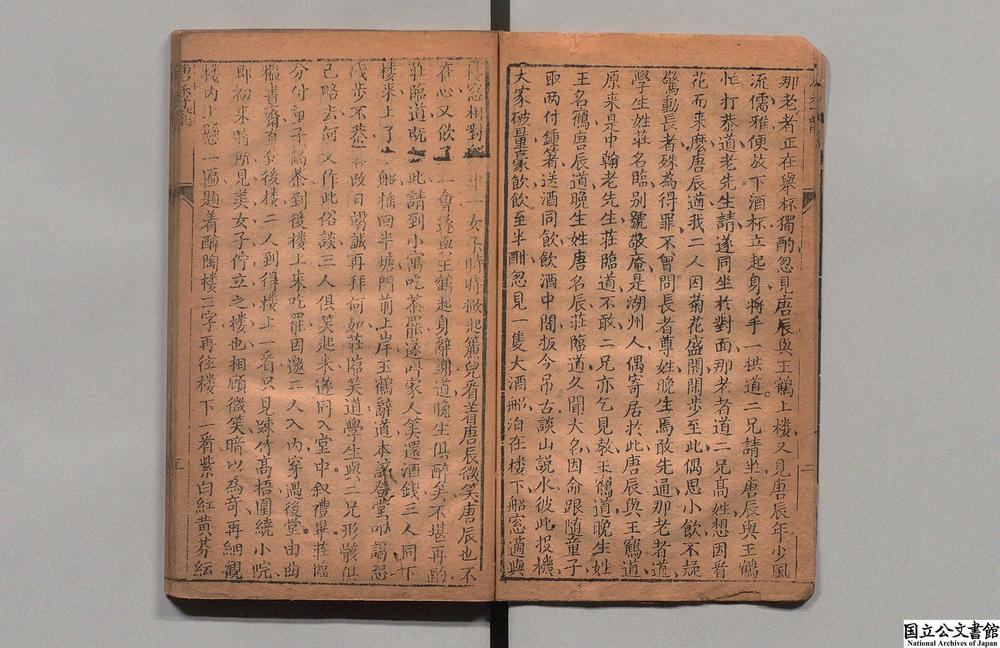 那老者正在舉杯獨酌忽見唐辰與王鶴上楼又見唐辰年少風
流儒雅便放下酒杯立起身將手一拱道二兄請坐唐辰與王鶴
忙打恭道老先生請遂同坐於對面那老者道二兄高姓想因看
花而来麼唐辰道我二人因菊花盛開閒步至此偶思小飲不疑
驚動長者殊為得罪不曾問長者尊姓晚生焉敢先通那老者道
學生姓莊名臨别號敬庵是湖州人偶寄居於此唐辰與王鶴道
原来是中翰老先生莊臨道不敢二兄亦乞見教王鶴道晚生姓
王名鶴唐辰道晚生姓唐名辰莊臨道久聞大名因命跟随童子
取两付鍾箸送酒同飲飲酒中間扳今吊古談山説水彼此投機
大家破量豪飲飲至半酣忽見一隻大酒船泊在楼下船窓適與
楼窓相對
坐一女子時時揪起簾兒看着唐辰微笑唐辰也不
在心又飲了一會遂與王鶴起身辭謝道晚生俱醉矣不堪再酌
莊臨道既
此請到小寓吃茶罷遂叫家人笑還酒錢三人同下
楼来上了
船摇回半塘門前上岸王鶴辭道本該登堂叩謁恐
残步不恭
改日竭誠再拜何如莊臨笑道學生與二兄形骸俱
已略去何
作此俗談三人俱笑起来遂同入堂中叙禮畢莊臨
分付童子
茶到後楼上来吃罷因邀二人入内穿過後堂由曲
檻畫齋
後楼二人到得楼上一看只見踈竹高梧圍繞小院
即初来時所見美女子佇立之楼也相顧微笑暗以為奇再細觀
楼内上懸一匾題着醉陶楼三字再往楼下一看紫白紅黄芬紜
国立公文書館
National Archives of Japan